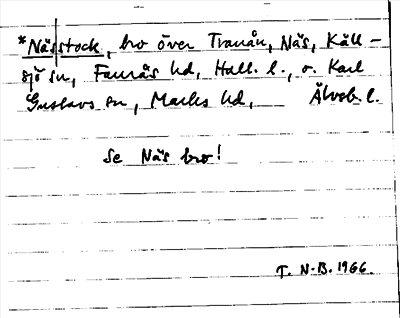 *Näs|stock, bro över Tranån, Näs, Käll-
sjö sn, Faurås hd, Hall. l., o. Karl
Gustavs sn, Marks hd, Älvsb. l.
Se Näs bro!
T. N-B. 1966.